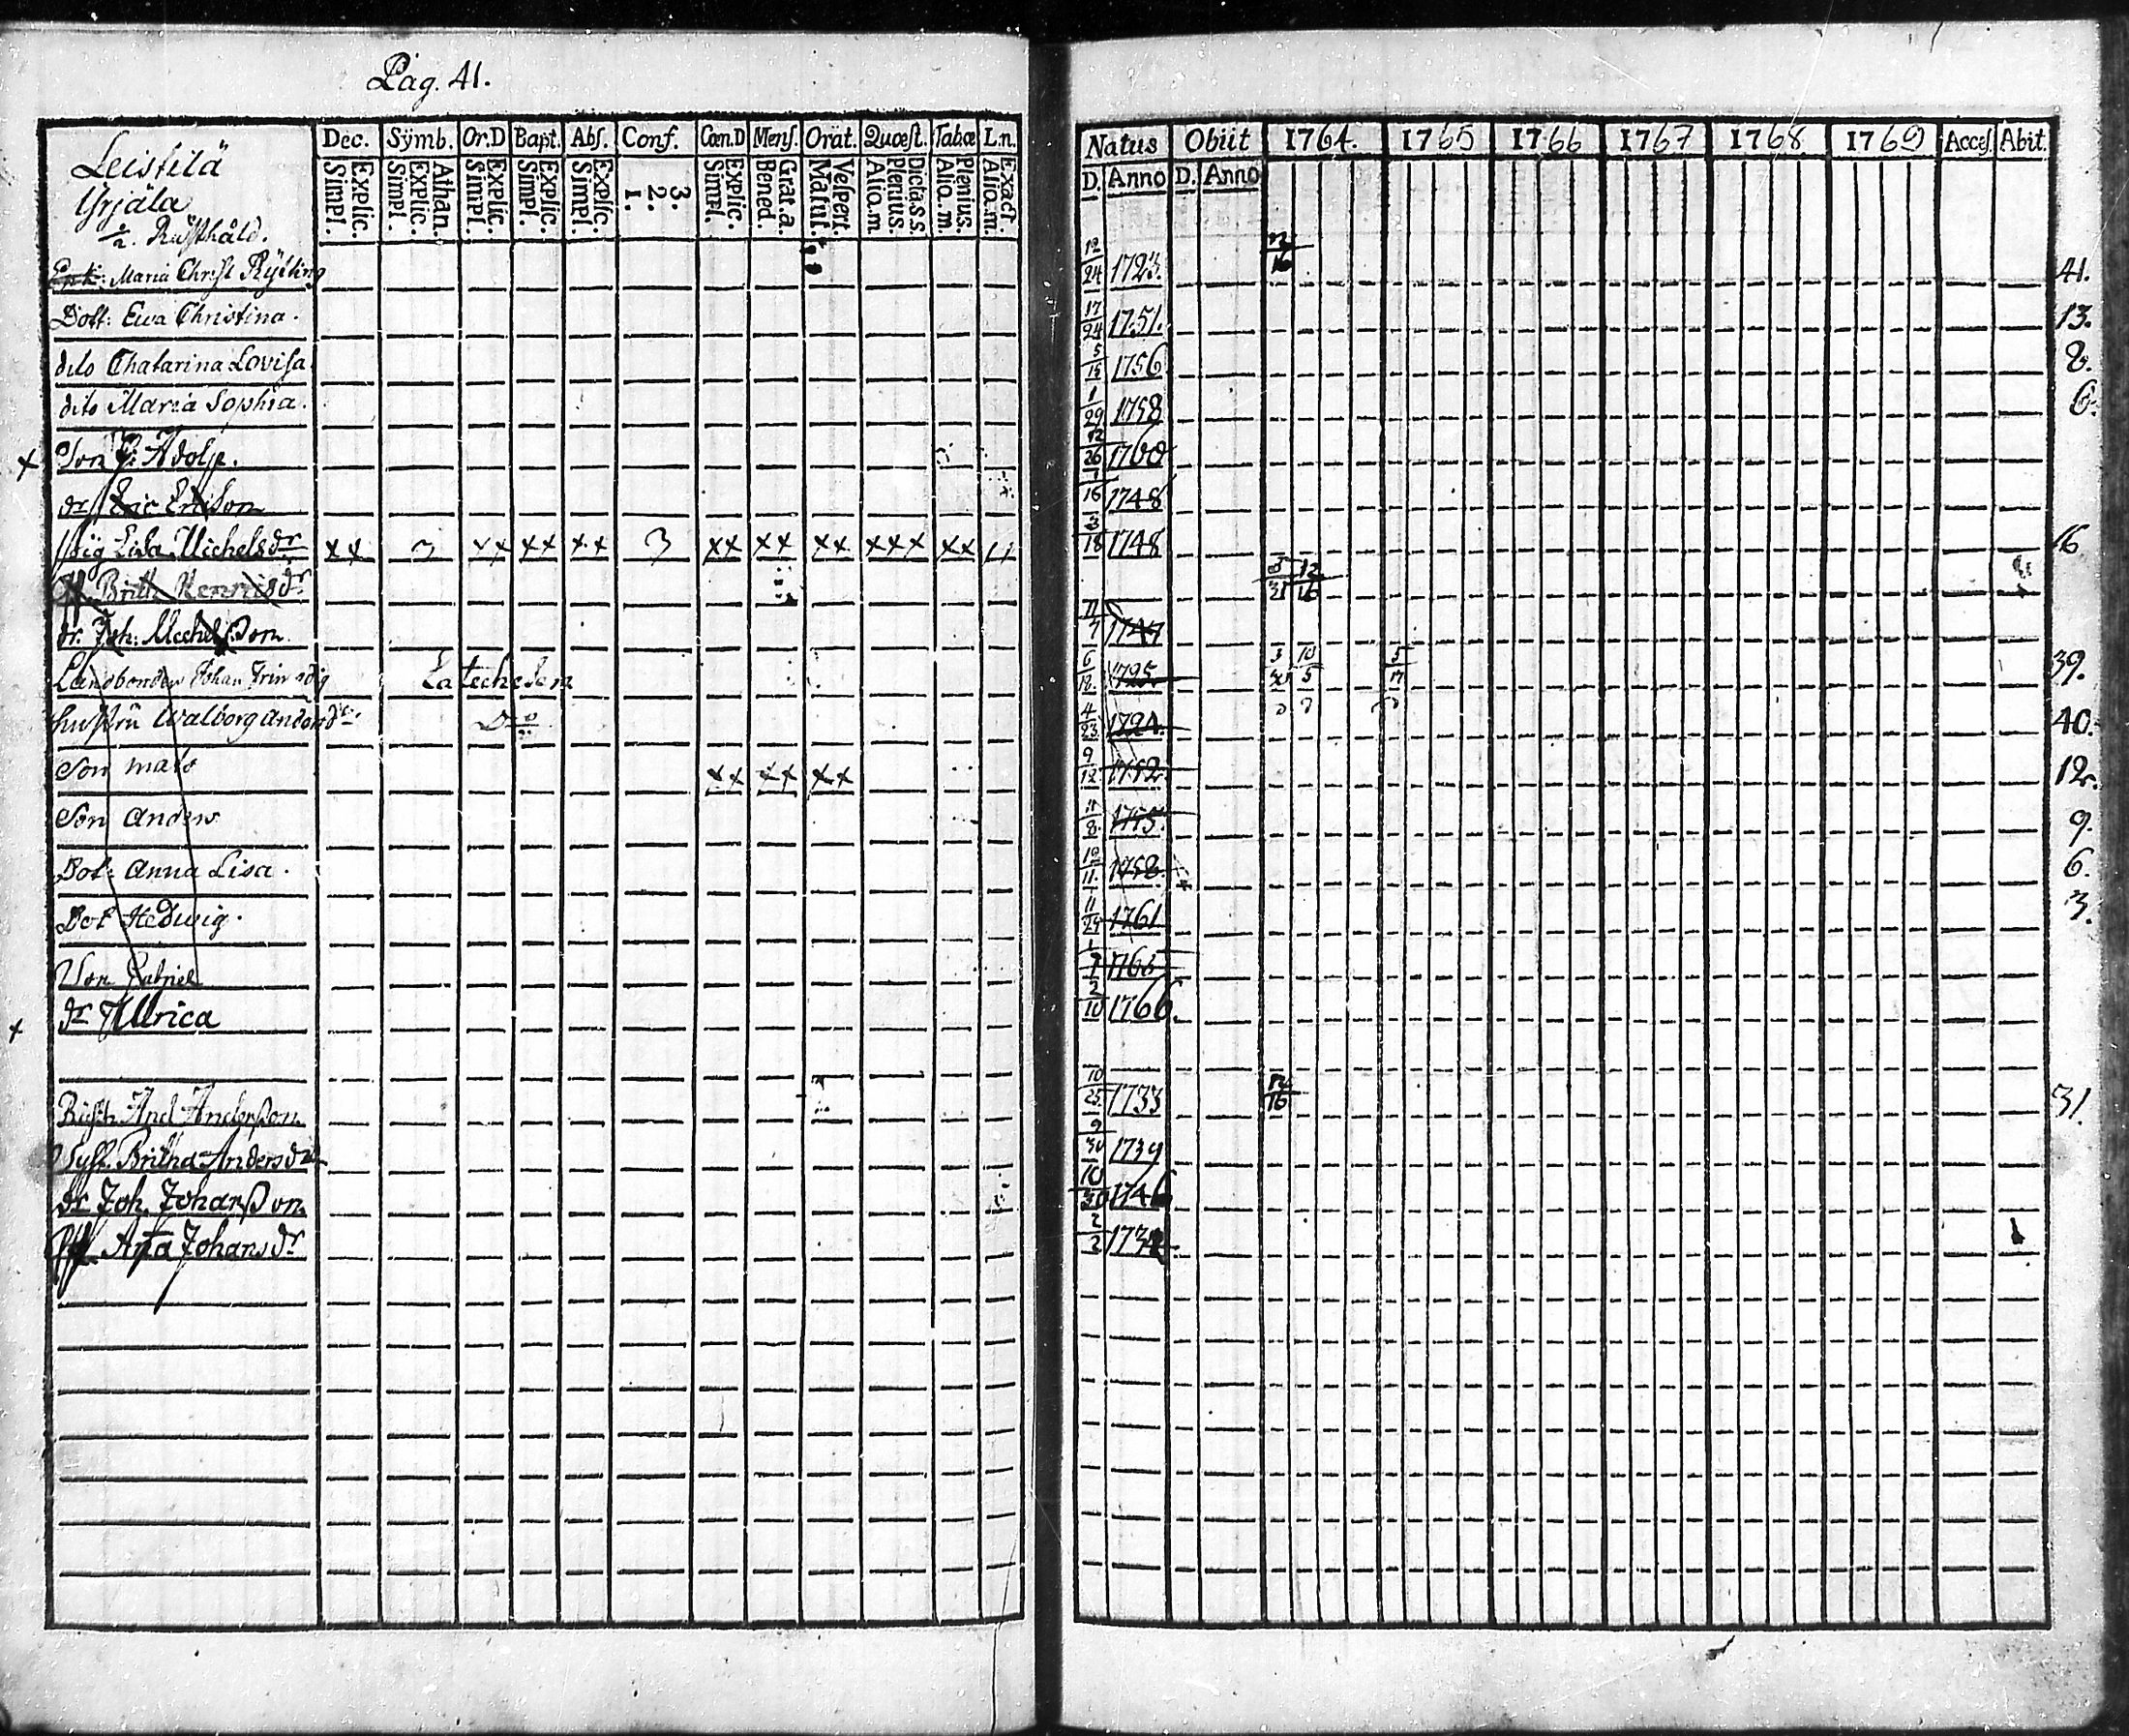 Pag. 41.
Leistilä
Yrjälä
1/2. Rusthåld.
Dec. Sÿmb. Or.D Bapt. Abs. Conf. Cœn.D Mens. Orat. Quæst. Tab.œ L.n.
Explic. Simpl. Athan. Explic. Simpl. Explic. Simpl. Explic. Simpl. Explic. Simpl. 3. 2. 1. Explic. Simpl. Grat.a. Bened. Vespert. Matut. Dictas s. Plenius. Aliq.m. Plenius. Aliq.m. Exact. Aliq.m.
Natus Obiit 1764. 1765 1766 1767 1768 1769 Acces. Abit.
D. Anno D. Anno
Maria Christ Rÿtling 12/24 1723. 12/16 41.
Dott: Ewa Christina. 17/24 1751. 13.
dito Chatarina Lovisa. 5/15 1756 8.
dito Maria Sophia. 1/29 1758 6.
+ Son G: Adolf. 12/26 1760
dr Eric Ericson 1/16 1748
pig Lisa Michelsdr xx 3 xx xx xx 3 xx xx xx xxx xx 3/18 1748 16
Brith Henricsdr 3/31 12/16
dr. Joh: Michelsson. 11/7 1747
Landbonden Johan Latechesen 6/18. 1725. 3/30 10/5 5/17 39.
hustru Walborg andersdr. Do 4/23. 1724. 40.
Son mats xx xx xx 9/12. 1752. 12.
Son anders 11/8. 1755. 9.
Dot: anna Lisa. 12/11. 1758. 6.
Dot Hedwig. 11/24 1761 3.
Son Gabriel 1/7 1765
+ dr Ullrica 2/10 1766.
Rusth And Andersson. 10/25. 1733 12/16 31.
Syst. Britha Andersdr 9/30 1739
dr Joh. Johansson. 10/30 1746
Johansdr 2/2